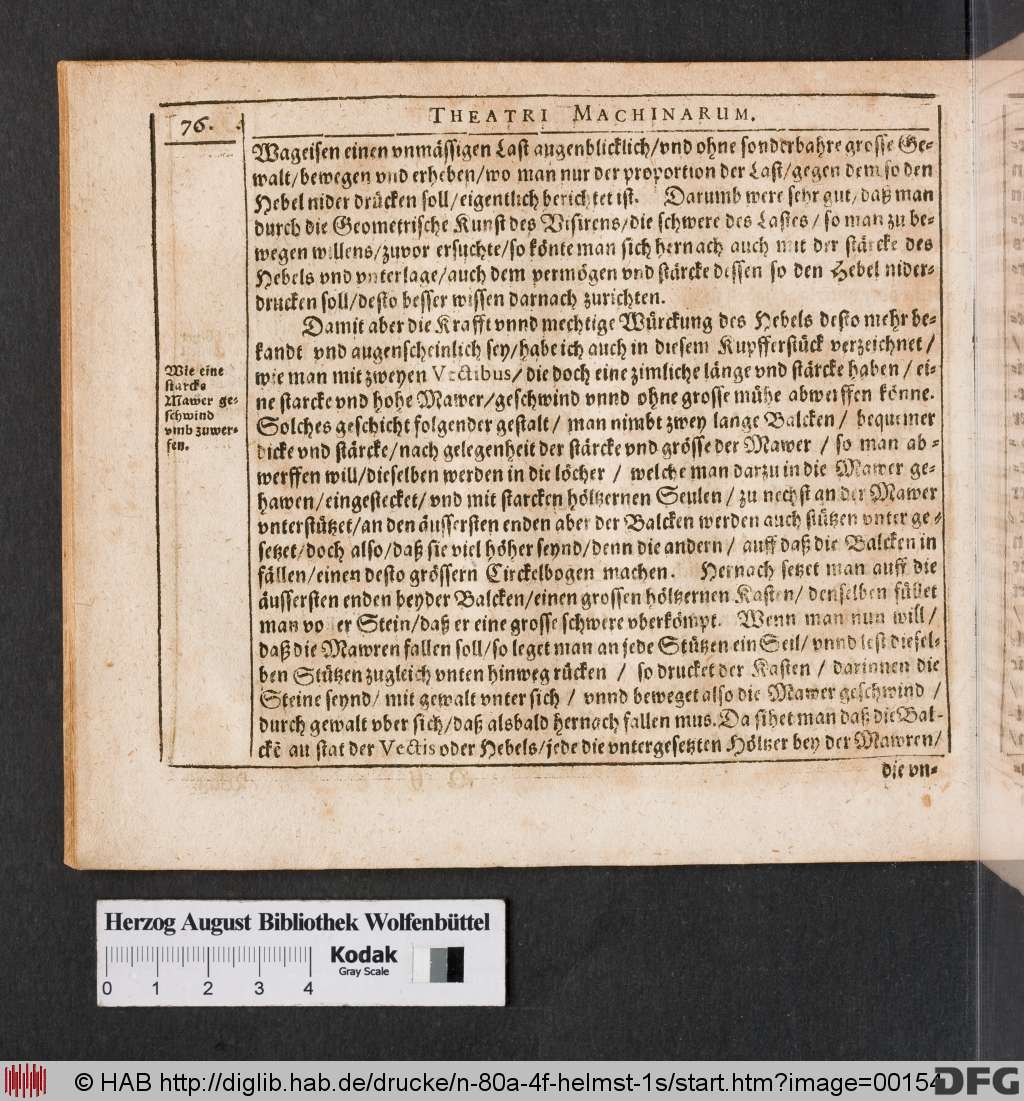 76.
THEATRI MACHINARUM.
Wageisen einen vnmässigen Last augenblicklich/vnd ohne sonderbahre grosse Ge-
walt/bewegen vnd erheben/wo man nur der proportion der Last/gegen dem so den
Hebel nider drücken soll/eigentlich berichtet ist. Darumb were sehr gut/daß man
durch die Geometrische Kunst des Visirens/die schwere des Lastes/so man zu be-
wegen willens/zuvor ersuchte/so könte man sich hernach auch mit der stärcke des
Hebels vnd vnterlage/auch dem vermögen vnd stärcke dessen so den Hebel nider-
drucken soll/desto besser wissen darnach zurichten.
Damit aber die Krafft vnnd mechtige Würckung des Hebels desto mehr be-
kandt vnd augenscheinlich sey/habe ich auch in diesem Kupfferstück verzeichnet/
wie man mit zweyen Vectibus/die doch eine zimliche länge vnd stärcke haben/ei-
ne starcke vnd hohe Mawer/geschwind vnnd ohne grosse mühe abwerffen könne.
Solches geschicht folgender gestalt/man nimbt zwey lange Balcken/bequemer
dicke vnd stärcke/nach gelegenheit der stärcke vnd grösse der Mawer/so man ab-
werffen will/dieselben werden in die löcher/welche man darzu in die Mawer ge-
hawen/eingestecket/vnd mit starcken höltzernen Seulen/zu nechst an der Mawer
vnterstützet/an den äussersten enden aber der Balcken werden auch stützen vnter ge-
setzet/doch also/daß sie viel höher seynd/denn die andern/auff daß die Balcken in
fällen/einen desto grössern Circkelbogen machen. Hernach setzet man auff die
äussersten enden beyder Balcken/einen grossen höltzernen Kasten/denselben füllet
man voller Stein/daß er eine grosse schwere vberkömpt. Wenn man nun will/
daß die Mawren fallen soll/so leget man an jede Stützen ein Seil/vnnd lest diesel-
ben Stützen zugleich vnten hinweg rücken/so drucket der Kasten/darinnen die
Steine seynd/mit gewalt vnter sich/vnnd beweget also die Mawer geschwind/
durch gewalt vber sich/daß alsbald hernach fallen mus. Da sihet man daß die Bal-
ckē an stat der Vectis oder Hebels/jede die vntergesetzten Höltzer bey der Mawren/
die vn-
Wie eine
starcke
Mawer ge-
schwind
vmb zuwer-
fen.
Herzog August Bibliothek Wolfenbüttel
Kodak
Gray Scale
0 1 2 3 4
© HAB http://diglib.hab.de/drucke/n-80a-4f-helmst-1s/start.htm?image=00154
DFG